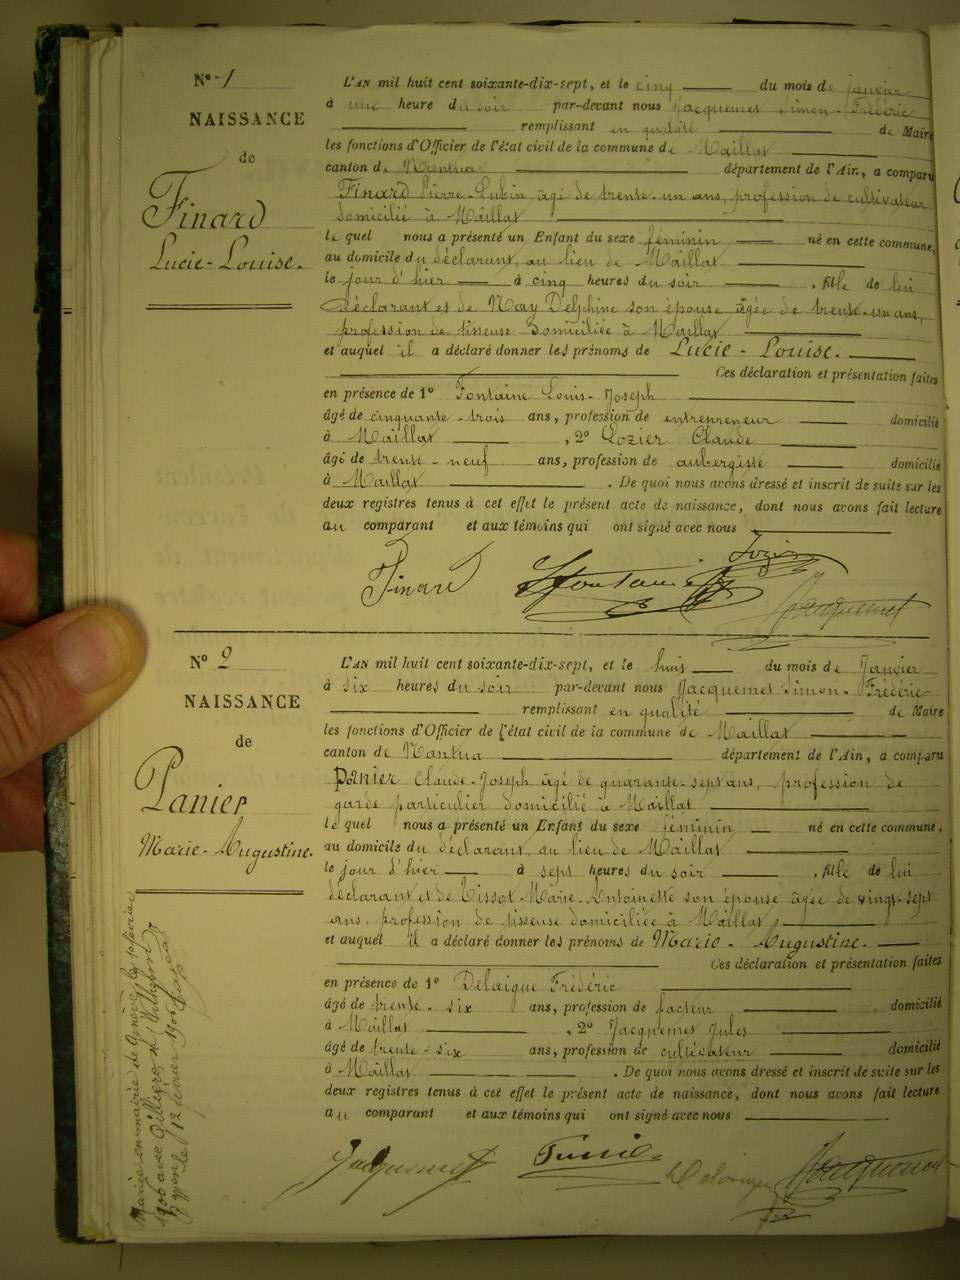 N° 1
NAISSANCE
de
Finard
Lucie-Louise.
L'AN mil huit cent soixante-dix-sept, et le cinq du mois de janvier
à une heure du soir par-devant nous Jacquemet Simon-Frédéric
remplissant en qualité de Maire
les fonctions d'Officier de l'état civil de la commune de Maillat
canton de Nantua département de l'Ain, a comparu
Finard Pierre-Lubin âgé de trente-un ans, profession de cultivateur
domicilié à Maillat
le quel nous a présenté un Enfant du sexe féminin né en cette commune,
au domicile du déclarant, au lieu de Maillat
le jour d'hier à cinq heures du soir, fille de lui
déclarant et de Nay Delphine son épouse âgée de trente-un ans,
profession de tisseuse domiciliée à Maillat
et auquel il a déclaré donner les prénoms de Lucie-Louise.
Ces déclaration et présentation faites
en présence de 1° Fontaine Louis-Joseph
âgé de cinquante-trois ans, profession de entrepreneur domicilié
à Maillat, 2° Lozier Claude
âgé de trente-neuf ans, profession de aubergiste domicilié
à Maillat. De quoi nous avons dressé et inscrit de suite sur les
deux registres tenus à cet effet le présent acte de naissance, dont nous avons fait lecture
au comparant et aux témoins qui ont signé avec nous
Finard Fontaine Lozier Jacquemet
N° 2
NAISSANCE
de
Panier
Marie-Augustine.
L'AN mil huit cent soixante-dix-sept, et le huit du mois de Janvier
à six heures du soir par-devant nous Jacquemet Simon-Frédéric
remplissant en qualité de Maire
les fonctions d'Officier de l'état civil de la commune de Maillat
canton de Nantua département de l'Ain, a comparu
Panier Claude-Joseph âgé de quarante-sept ans, profession de
garde particulier domicilié à Maillat
le quel nous a présenté un Enfant du sexe féminin né en cette commune,
au domicile du déclarant, au lieu de Maillat
le jour d'hier à sept heures du soir, fille de lui
déclarant et de Tissot Marie-Antoinette son épouse âgée de vingt-sept
ans, profession de tisseuse domiciliée à Maillat
et auquel il a déclaré donner les prénoms de Marie-Augustine.
Ces déclaration et présentation faites
en présence de 1° Delaigue Frédéric
âgé de trente-six ans, profession de facteur domicilié
à Maillat, 2° Jacquemet Jules
âgé de trente-six ans, profession de cultivateur domicilié
à Maillat. De quoi nous avons dressé et inscrit de suite sur les
deux registres tenus à cet effet le présent acte de naissance, dont nous avons fait lecture
au comparant et aux témoins qui ont signé avec nous
Jacquemet Delaigue Jacquemet
Mariée en mairie de Genève, le 10 février
1906 avec Gilliéron
le 12 février 1906